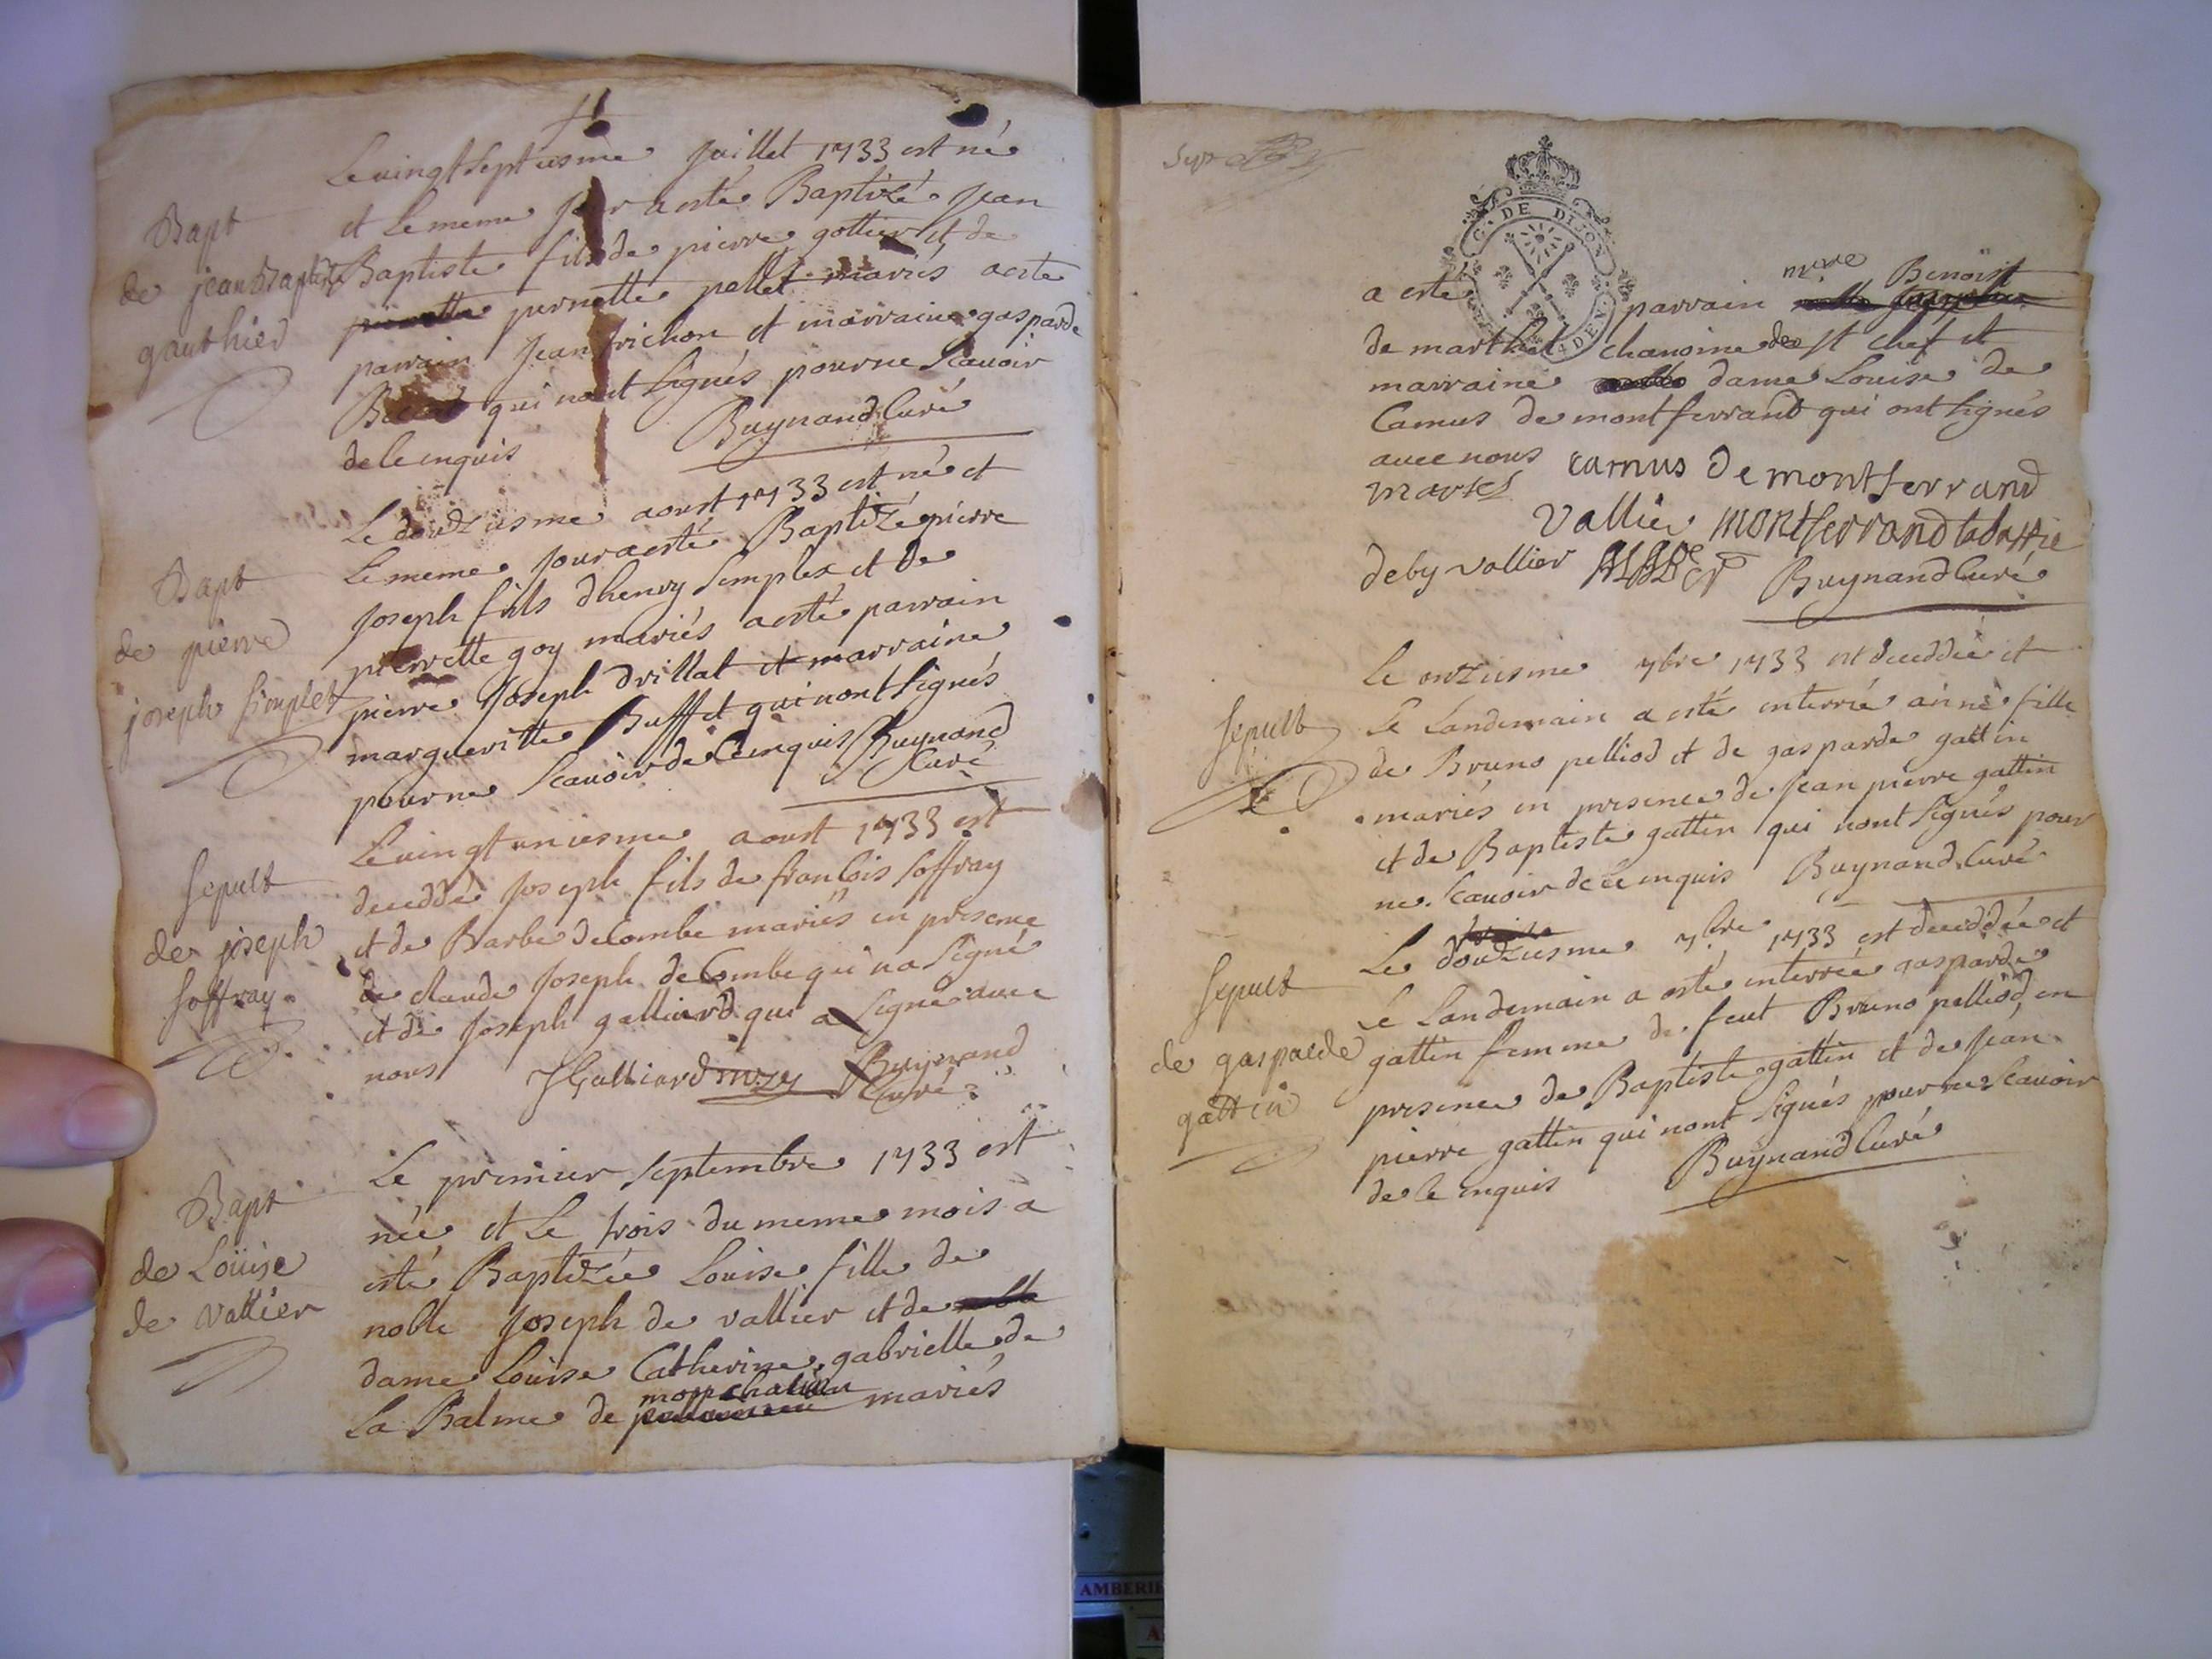 Le vingt septiesme juillet 1733 est né
et Le meme jour a esté Baptizé Jean
Baptiste fils de pierre gottier et de
pernette pellet mariés a esté
parrain Jean frichon et marraine gasparde
qui n'ont signés pour ne Scavoir
de ce enquis Buynand Curé
Bapt
de jean Baptiste
gauthier
Le douziesme aoust 1733 est né et
Le meme jour a esté Baptizé pierre
Joseph fils dhenry Simplex et de
pierrette goy mariés a esté parrain
pierre Joseph drillat et marraine
margueritte Buffet qui n'ont signés
pour ne Scavoir de Ce enquis Buynand
Curé
Bapt
de pierre
joseph Simplet
Le vingt uniesme aoust 1733 est
deceddé Joseph fils de francois Soffray
et de Barbe deCombe mariés en presence
de claude Joseph deCombe qui na signé
et de Joseph galliard qui a signé avec
nous JGalliard Buynand
Curé
Sepult
de joseph
Soffray
Le premier Septembre 1733 est
née et Le trois du meme mois a
esté Baptizée Louise fille de
noble Joseph de vallier et de
dame Louise Catherine gabrielle de
La Balme de mariés
Bapt
de Loüise
de Vallier
C. DE DIJON
4 DEN.
a esté parrain mre Benoist
de martel chanoine de st chef et
marraine dame Louise de
Camus de montferrand qui ont signés
avec nous camus De montferrand
martel
Vallier montferrand
deby vallier Buynand Curé
Le onziesme 7bre 1733 est deceddée et
Le Landemain a esté enterrée anne fille
de Bruno pelliod et de gasparde gattin
mariés en presence de Jean pierre gattin
et de Baptiste gattin qui n'ont signés pour
ne Scavoir de ce enquis Buynand Curé
Sepult
Le douziesme 7bre 1733 est deceddée et
Le Landemain a esté enterrée gasparde
gattin femme de feut Bruno pelliod en
presence de Baptiste gattin et de Jean
pierre gattin qui nont signés pour ne Scavoir
de Ce enquis Buynand Curé
Sepult
de gasparde
gattin
AMBERIE